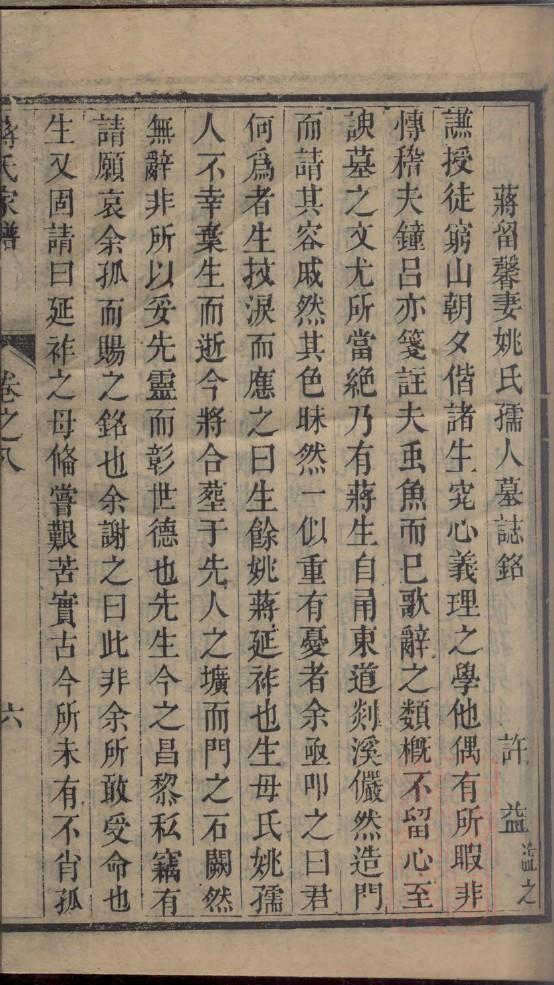 蔣留馨妻姚氏孺人墓誌銘　許益溢之
謙授徒窮山朝夕偕諸生究心義理之學他偶有所暇非
傳稽夫鐘呂亦箋註夫䖝魚而巳歌辭之類槪不留心至
諛墓之文尤所當絶乃有蔣生自甬東道剡溪儼然造門
而請其容戚然其色昧然一似重有憂者余亟叩之曰君
何爲者生抆淚而應之曰生餘姚蔣延祚也生母氏姚孺
人不幸棄生而逝今將合塟于先人之壙而門之石闕然
無辭非所以妥先靈而彰世德也先生今之昌黎私竊有
請願哀余孤而賜之銘也余謝之曰此非余所敢受命也
生又固請曰延祚之母偹嘗艱苦實古今所未有不肖孤
蔣氏家譜　卷之八　六